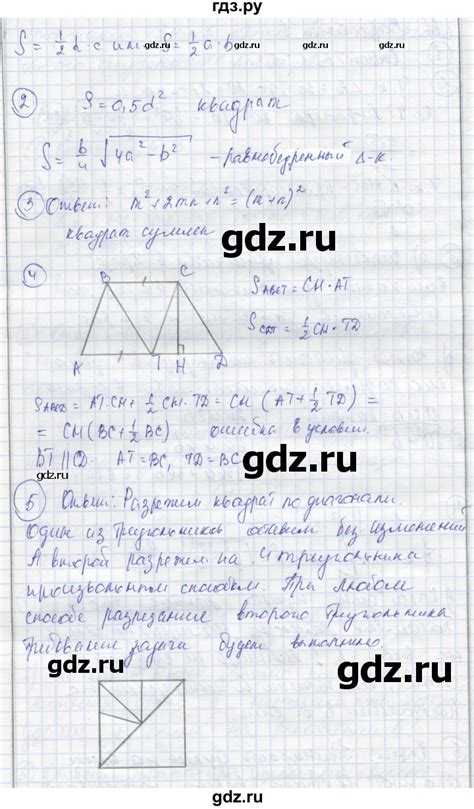 гдз.ру
S = 1/2 h · c или S = 1/2 a · b
gdz.ru gdz.ru
2 S = 0,5d² квадрат
S = b/4 √(4a² − b²) – равнобедренный Δ-к
gdz.ru gdz.ru
3 Ответ: m² + 2mn + n² = (m + n)²
квадрат суммы
gdz.ru
4
B C
A T H D
S_ABCT = CH · AT.
S_CDT = 1/2 CH · TD
gdz.ru
S_ABCD = AT · CH + 1/2 CH · TD = CH (AT + 1/2 TD) =
= CH (BC + 1/2 BC) ошибка в условии.
BT || CD. AT = BC, TD = BC
gdz.ru
5 Ответ: Разрежем квадрат по диагонали.
Один из треугольников оставим без изменений
А второй разрежем на 4 треугольника
произвольным способом. При любом
gdz.ru
способе разрезания второго треугольника
требование задачи будет выполнено.
gdz.ru
gdz.ru
gdz.ru